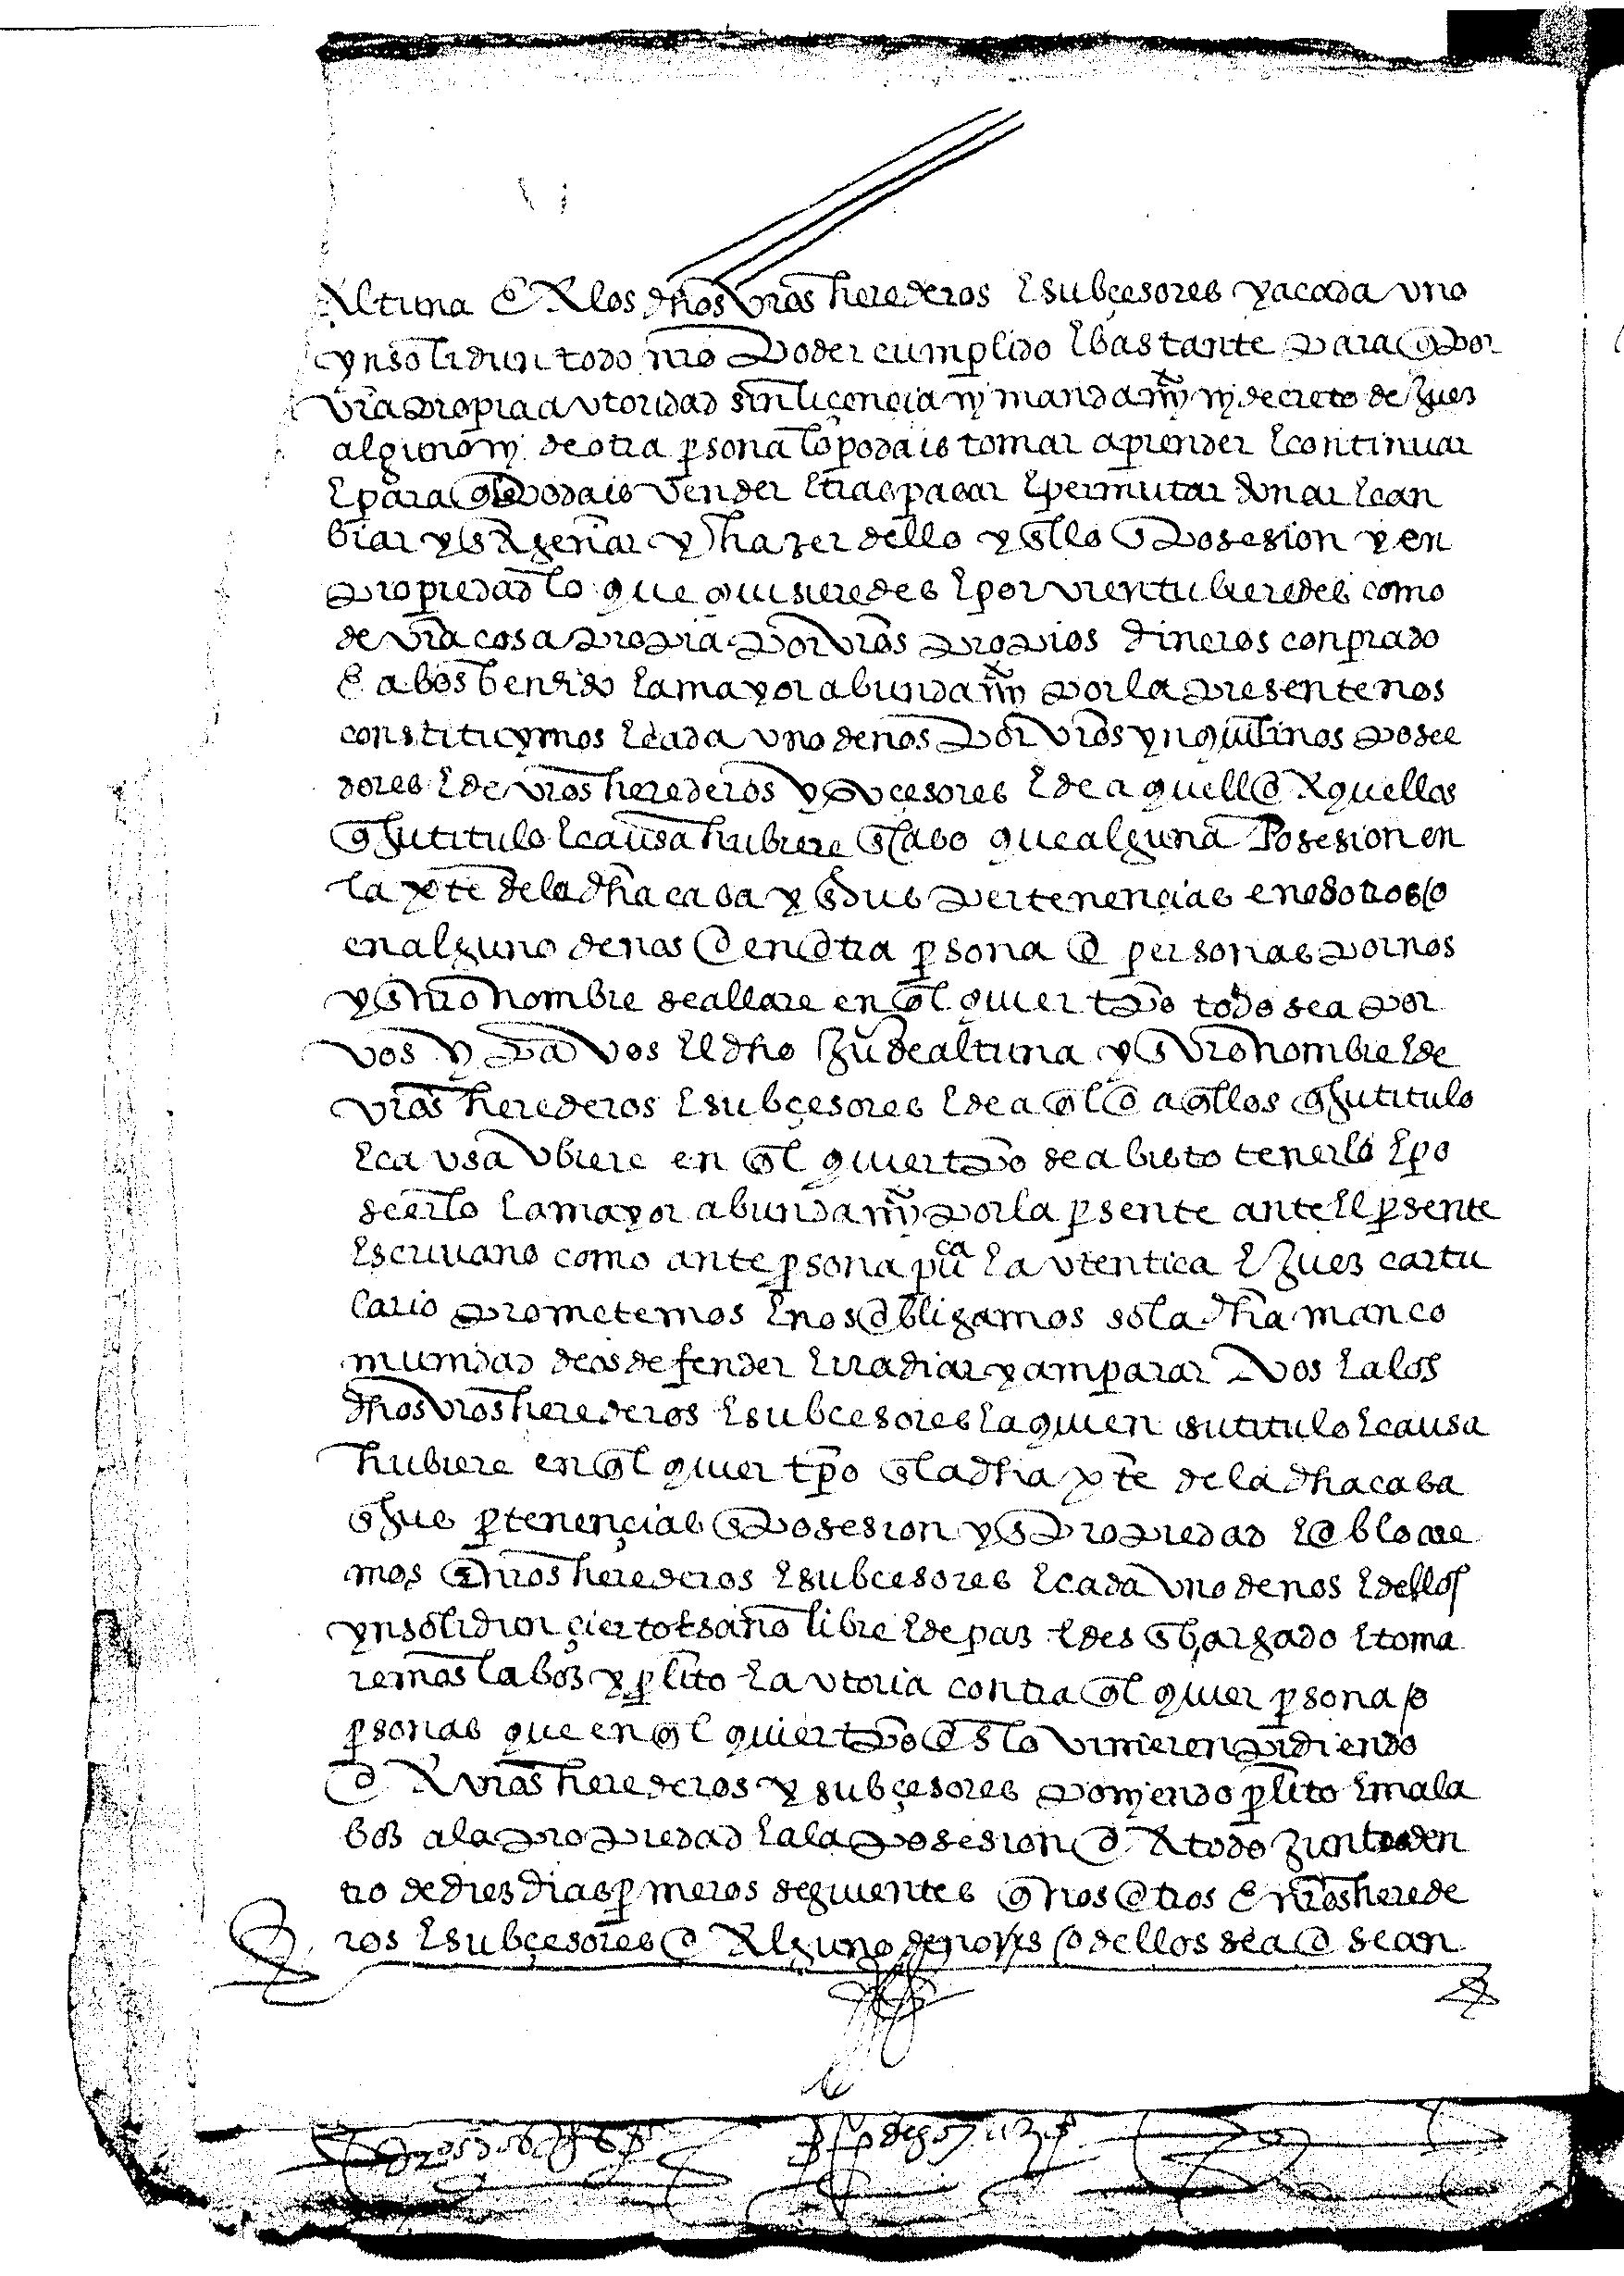 Altuna E A los dhos vros herederos E subçesores y a cada uno
ynsolidun todo nro Poder cumplido E bastante Para q Por
vra Propia autoridad sin liçencia ny mandamyº ny decreto de Juez
alguno ny de otra psona lo podais tomar aprender E continuar
E para q le Podais vender E traspasar E permutar donar E can
biar y enAgenar y hazer dello y en llo en Posesion y en
Propiedad lo que quisieredes E por vien tubieredes como
de vra cosa Propia Por vros Propios dineros conprado
E a bos bendido E a mayor abundamyº Por la Presente nos
constituymos E cada uno de nos Por vros ynquilinos Posee
dores E de vros herederos y suçesores E de aquell o Aquellos
q su titulo E causa hubiere en caso que alguna Posesion en
la pte de la dha casa y en sus Pertenençias en nosotros o
en alguno de nos o en otra psona o personas Por nos
y en nro nombre se allare en ql quier tpo todo sea Por
vos y Pa vos El dho Juº de altuna y en vro nombre E de
vros herederos E subçesores E de a ql o a qllos q su titulo
E causa ubiere en ql quier tpo se a bisto tenerlo E po
seerlo E a mayor abundamyº Por la psente ante El psente
Escrivano como ante psona puca E autentica E Juez cartu
lario Prometemos E nos obligamos so la dha manco
munidad de os defender E rradiar y amparar A vos E a los
dhos vros herederos E subcesores E a quien su titulo E causa
hubiere en ql quier tpo en la dha pte de la dha casa
en sus ptenençias en Posesion y en Propiedad E os lo are
mos E nros herederos E subcesores E cada uno de nos E dellos
ynsolidun çierto E sano libre E de paz E desenbargado E toma
remos la boz y plito E autoria contra ql quier psona o
psonas que en ql quier tpo os lo vinieren Pidiendo
o A vros herederos y subçesores Ponyendo plito E mala
boz a la Propiedad E a la Posesion o A todo Junto den
tro de diez dias pmeros seguientes q nos otros E nros herede
ros E subçesores o Alguno de nos o dellos sea o sean